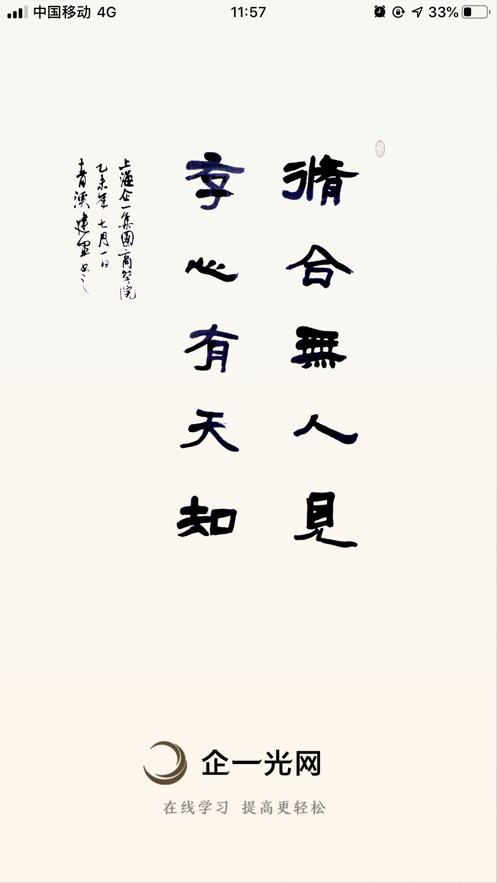 中国移动 4G
11:57
33%
脩合無人見
存心有天知
上海企一集團商學院
乙未年七月一日
青溪建軍书之
企一光网
在线学习 提高更轻松